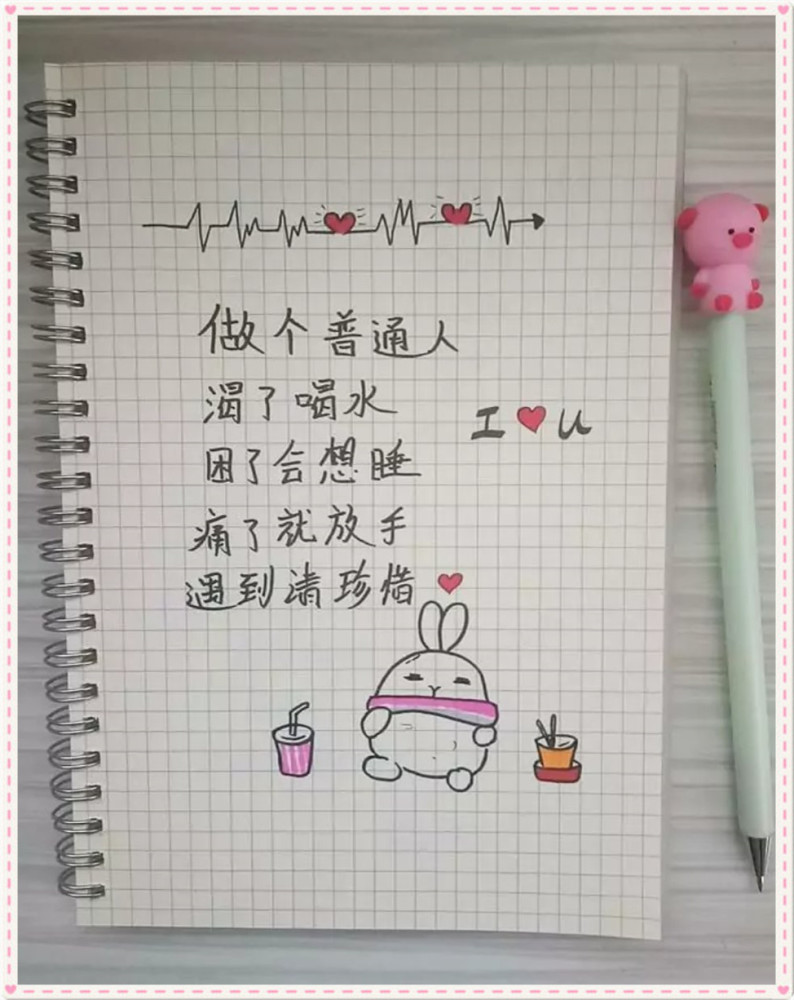 做个普通人
渴了喝水
I ❤ U
困了会想睡
痛了就放手
遇到请珍惜